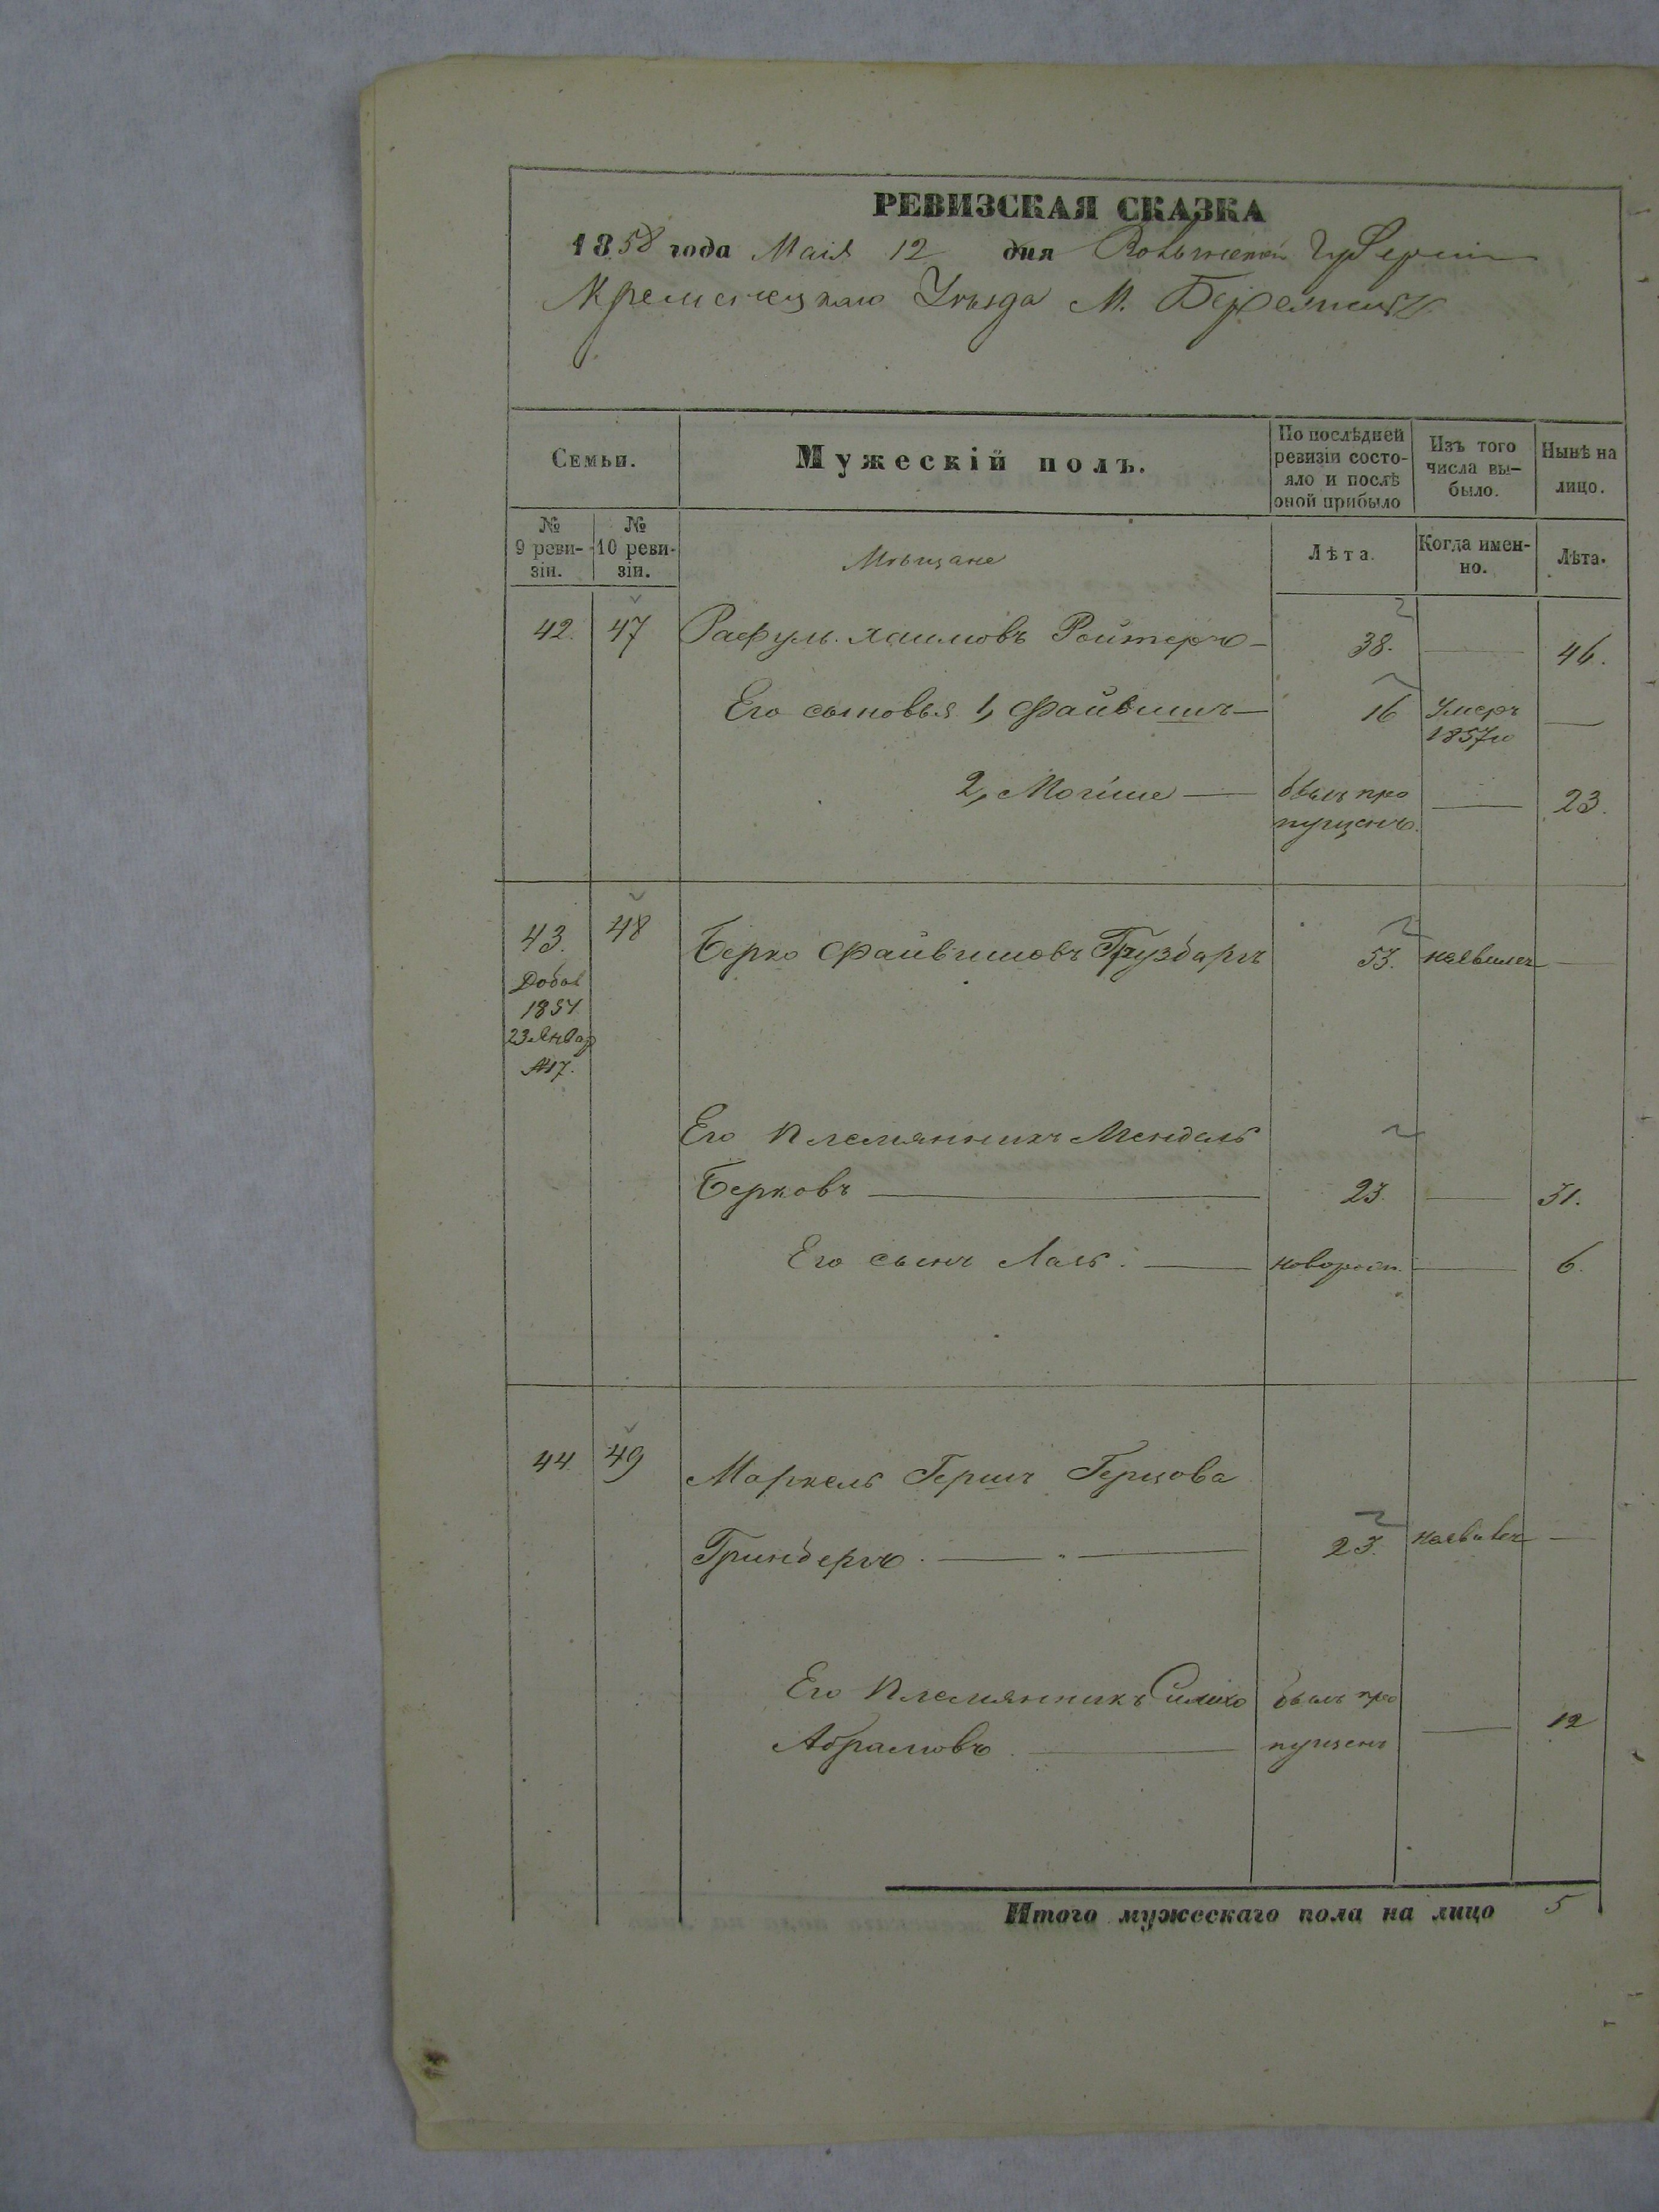 РЕВИЗСКАЯ СКАЗКА
1858 года Маія 12 дня Волынской Губерніи
Кременецкаго Уѣзда М.
Семьи.
Мужескій полъ.
По послѣдней ревизіи состояло и послѣ оной прибыло
Изъ того числа вы-было.
Нынѣ на лицо.
№ 9 реви-зіи.
№ 10 реви-зіи.
Мѣщане
Лѣта.
Когда имен-но.
Лѣта.
42. 47 Рафуль Хаимовъ Ройтеръ 38. 46.
Его сыновья 1, Файвишъ 16 Умеръ
1857го
2, былъ про 23.
пущенъ.
43. 48 Берко Файвишовъ 53.
Добав
1854
23 Январ
№17.
Его Племянникъ Мендель
Берковъ 23. 31.
Его сынъ новорож. 6.
44 49 Маркель Гершъ Герцова
Гринбергъ 23.
Его Племянникъ былъ про
Абрамовъ пущенъ 12
Итого мужескаго пола на лицо 5